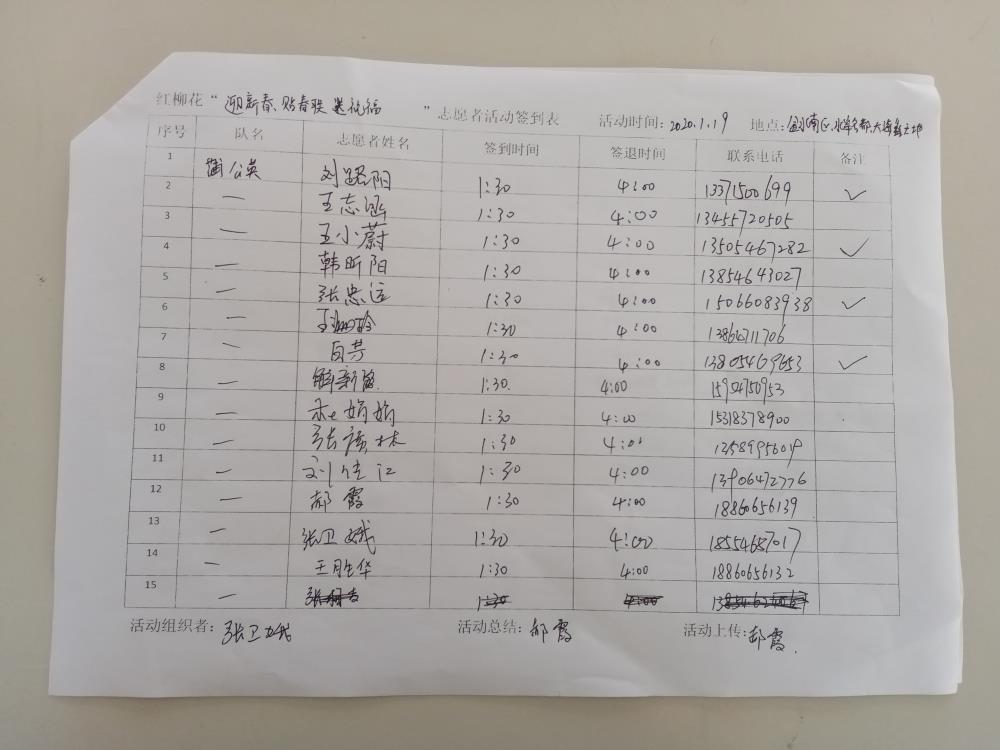 红柳花“迎新春、贴春联 送祝福”志愿者活动签到表 活动时间：2020.1.19 地点：
序号 队名 志愿者姓名 签到时间 签退时间 联系电话 备注
1 蒲公英 刘路阳 1:30 4:00 13371500699 ✓
2 — 王志涵 1:30 4:00 13455720505
3 — 王小蔚 1:30 4:00 13505467282 ✓
4 — 韩昕阳 1:30 4:00 13854643027
5 — 张忠远 1:30 4:00 15066083938 ✓
6 — 1:30 4:00
7 — 白芳 1:30 4:00 13805469653 ✓
8 — 解新 1:30. 4:00 15954750953
9 — 娟娟 1:30 4:00 15318378900
10 — 张 林 1:30 4:00
11 — 刘佳江 1:30 4:00 13906472776
12 — 郝霞 1:30 4:00 18860656139
13 — 张卫娥 1:30 4:00 18554687017
14 — 王胜华 1:30 4:00 18860656132
15 — 1:30 4:00
活动组织者：张卫娥 活动总结：郝霞 活动上传：郝霞.